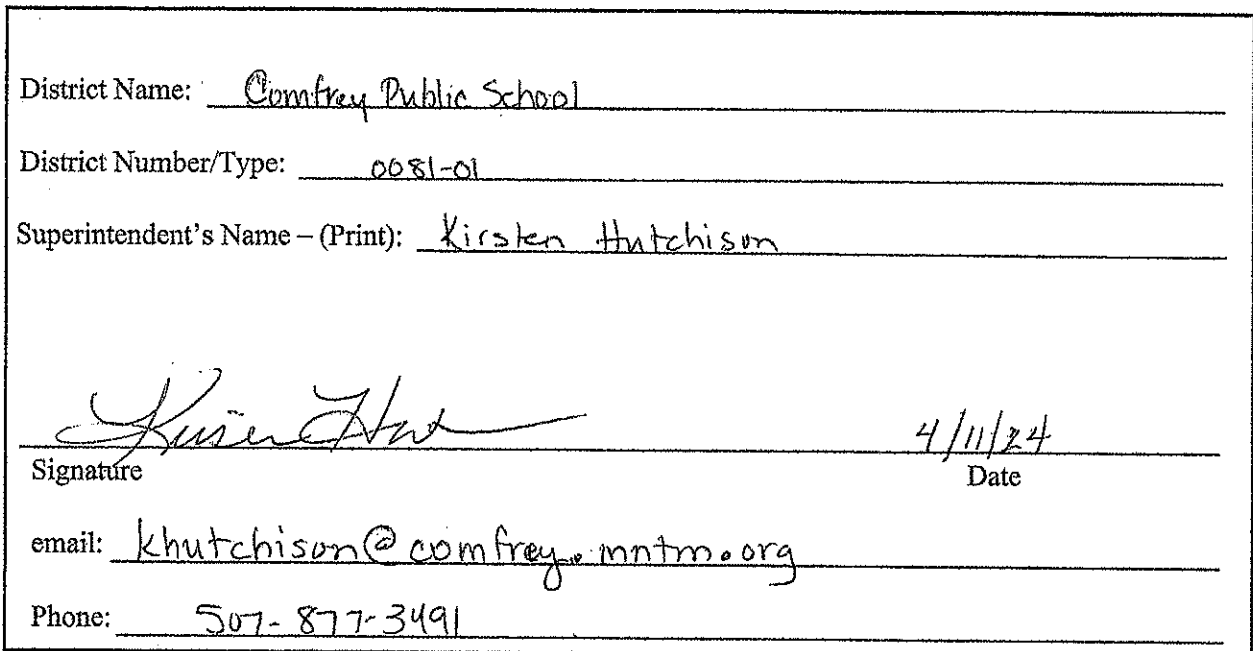 District Name: Comfrey Public School
District Number/Type: 0081-01
Superintendent's Name – (Print): Kirsten Hutchison
4/11/24
Signature Date
email: khutchison@comfrey.mntm.org
Phone: 507-877-3491